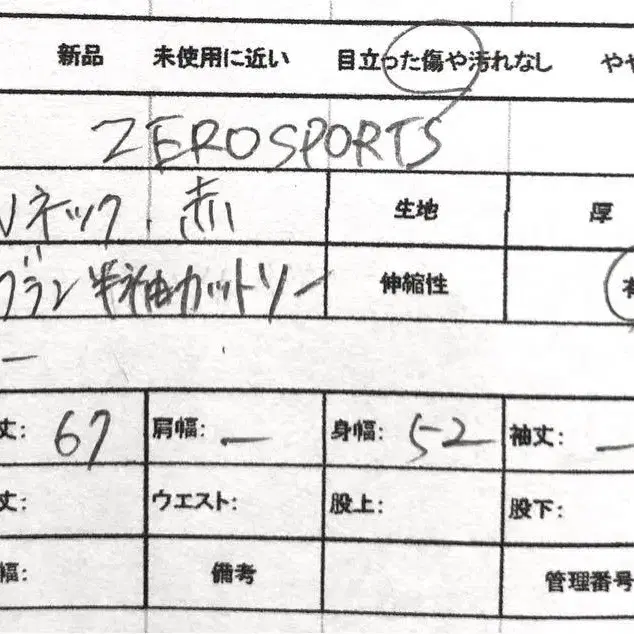 新品 未使用に近い 目立った傷や汚れなし やや
ZEROSPORTS
Vネック 、赤 生地 厚
グラン半袖カットソー 伸縮性 有
ー
丈: 67 肩幅: ー 身幅: 52 袖丈: ー
丈: ウエスト: 股上: 股下:
幅: 備考 管理番号